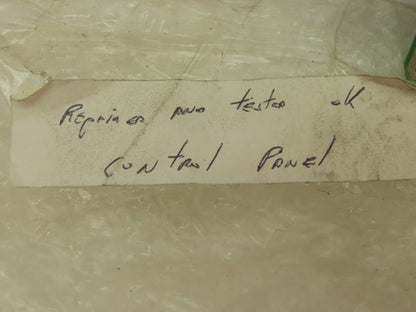 Repaired and tested ok
Control Panel